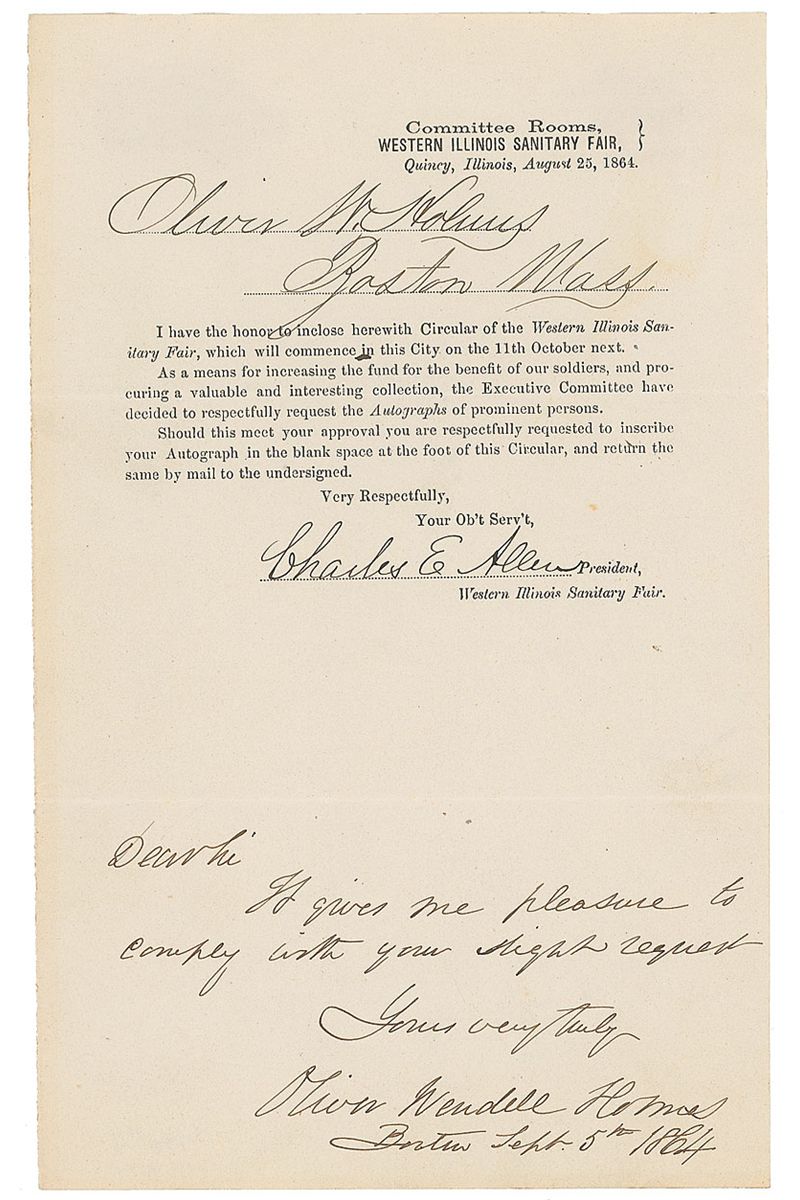 Committee Rooms,
WESTERN ILLINOIS SANITARY FAIR, }
Quincy, Illinois, August 25, 1864.
Oliver W. Holmes
Boston Mass.
I have the honor to inclose herewith Circular of the Western Illinois San-
itary Fair, which will commence in this City on the 11th October next.
As a means for increasing the fund for the benefit of our soldiers, and pro-
curing a valuable and interesting collection, the Executive Committee have
decided to respectfully request the Autographs of prominent persons.
Should this meet your approval you are respectfully requested to inscribe
your Autograph in the blank space at the foot of this Circular, and return the
same by mail to the undersigned.
Very Respectfully,
Your Ob't Serv't,
Charles E Allen President,
Western Illinois Sanitary Fair.
Dear Sir
It gives me pleasure to
comply with your slight request
Yours very truly
Oliver Wendell Holmes
Boston Sept. 5th 1864